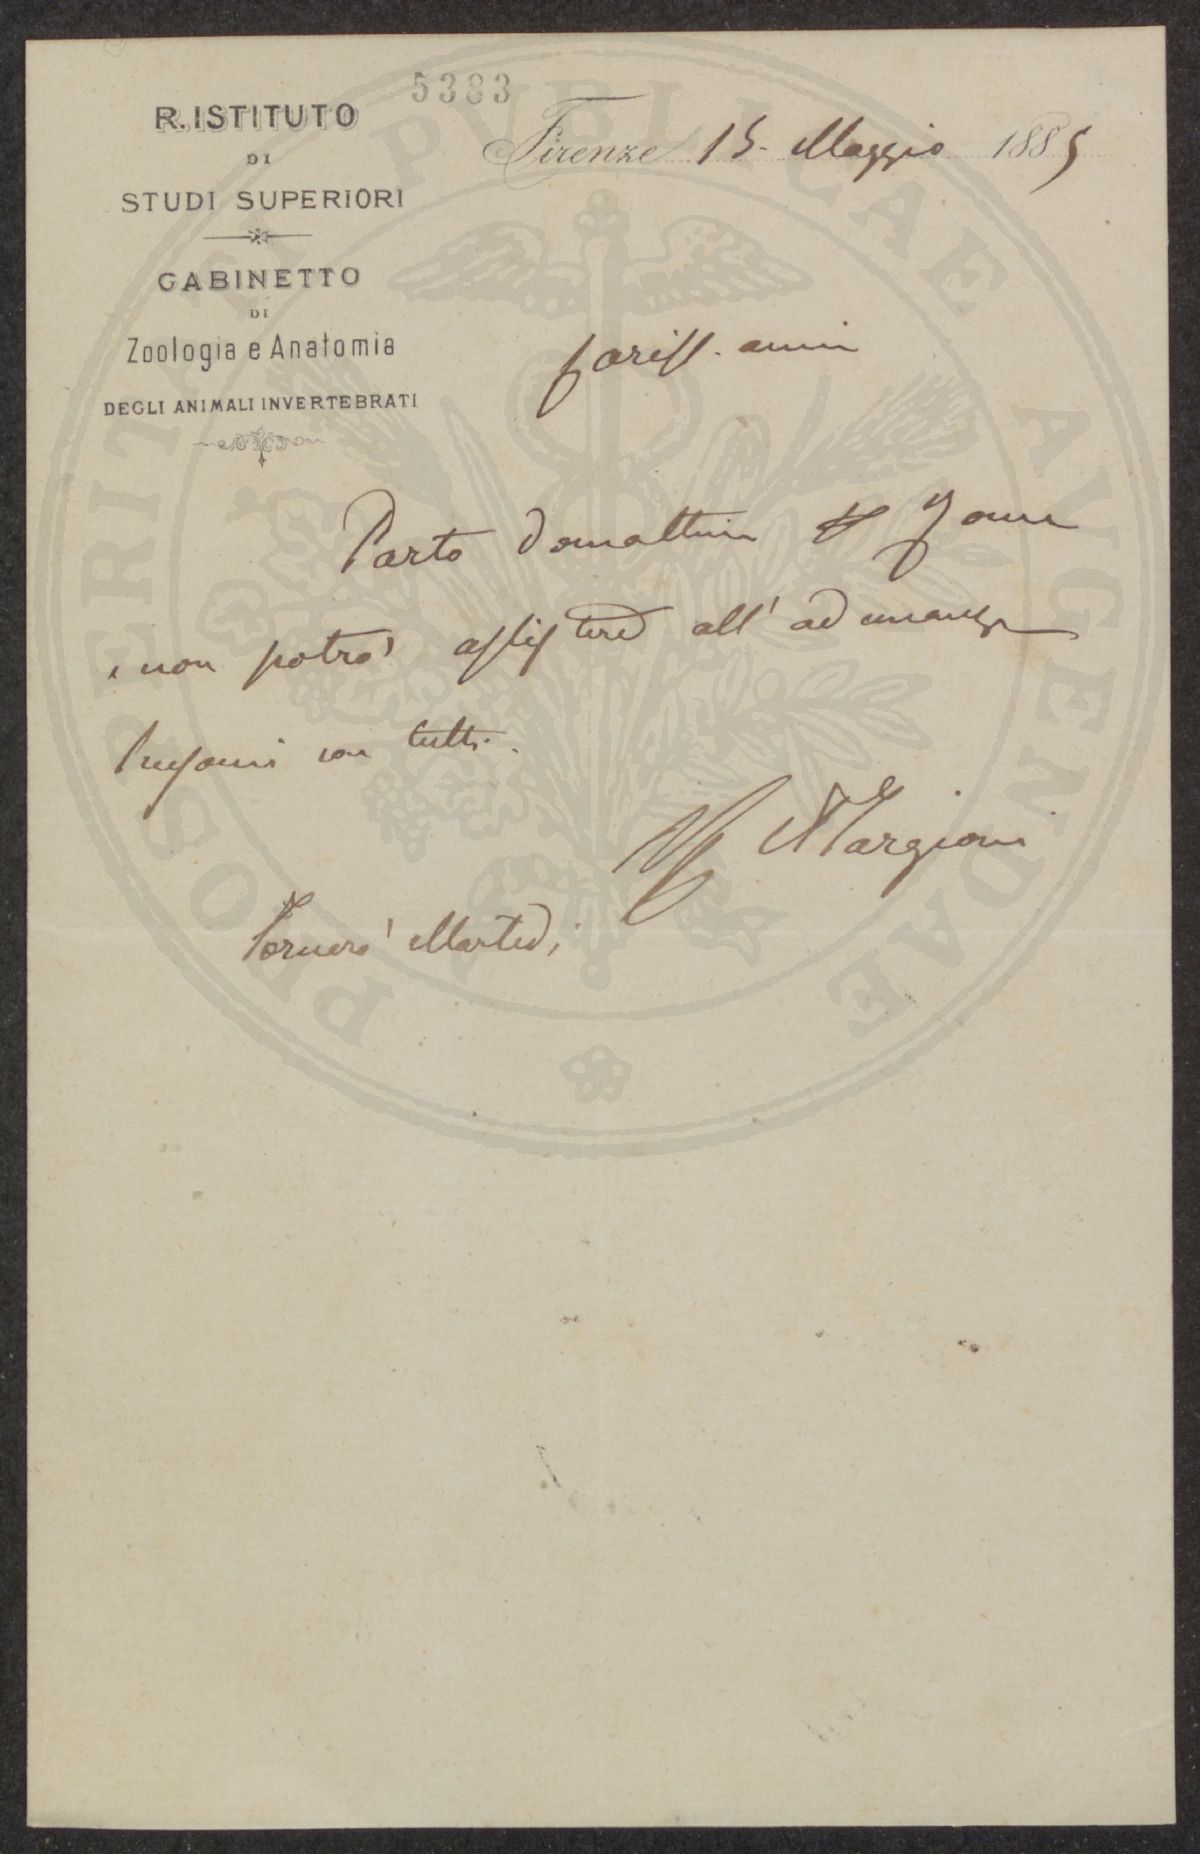 5383
R. ISTITUTO
DI
STUDI SUPERIORI
GABINETTO
DI
Zoologia e Anatomia
DEGLI ANIMALI INVERTEBRATI
Firenze 15. Maggio 1885
Cariss. amici
Parto domattina
e non potrò assistere all' adunanza
con tutti.
Targioni
Tornerò Martedì
PROSPERITATI PVBLICAE AVGENDAE